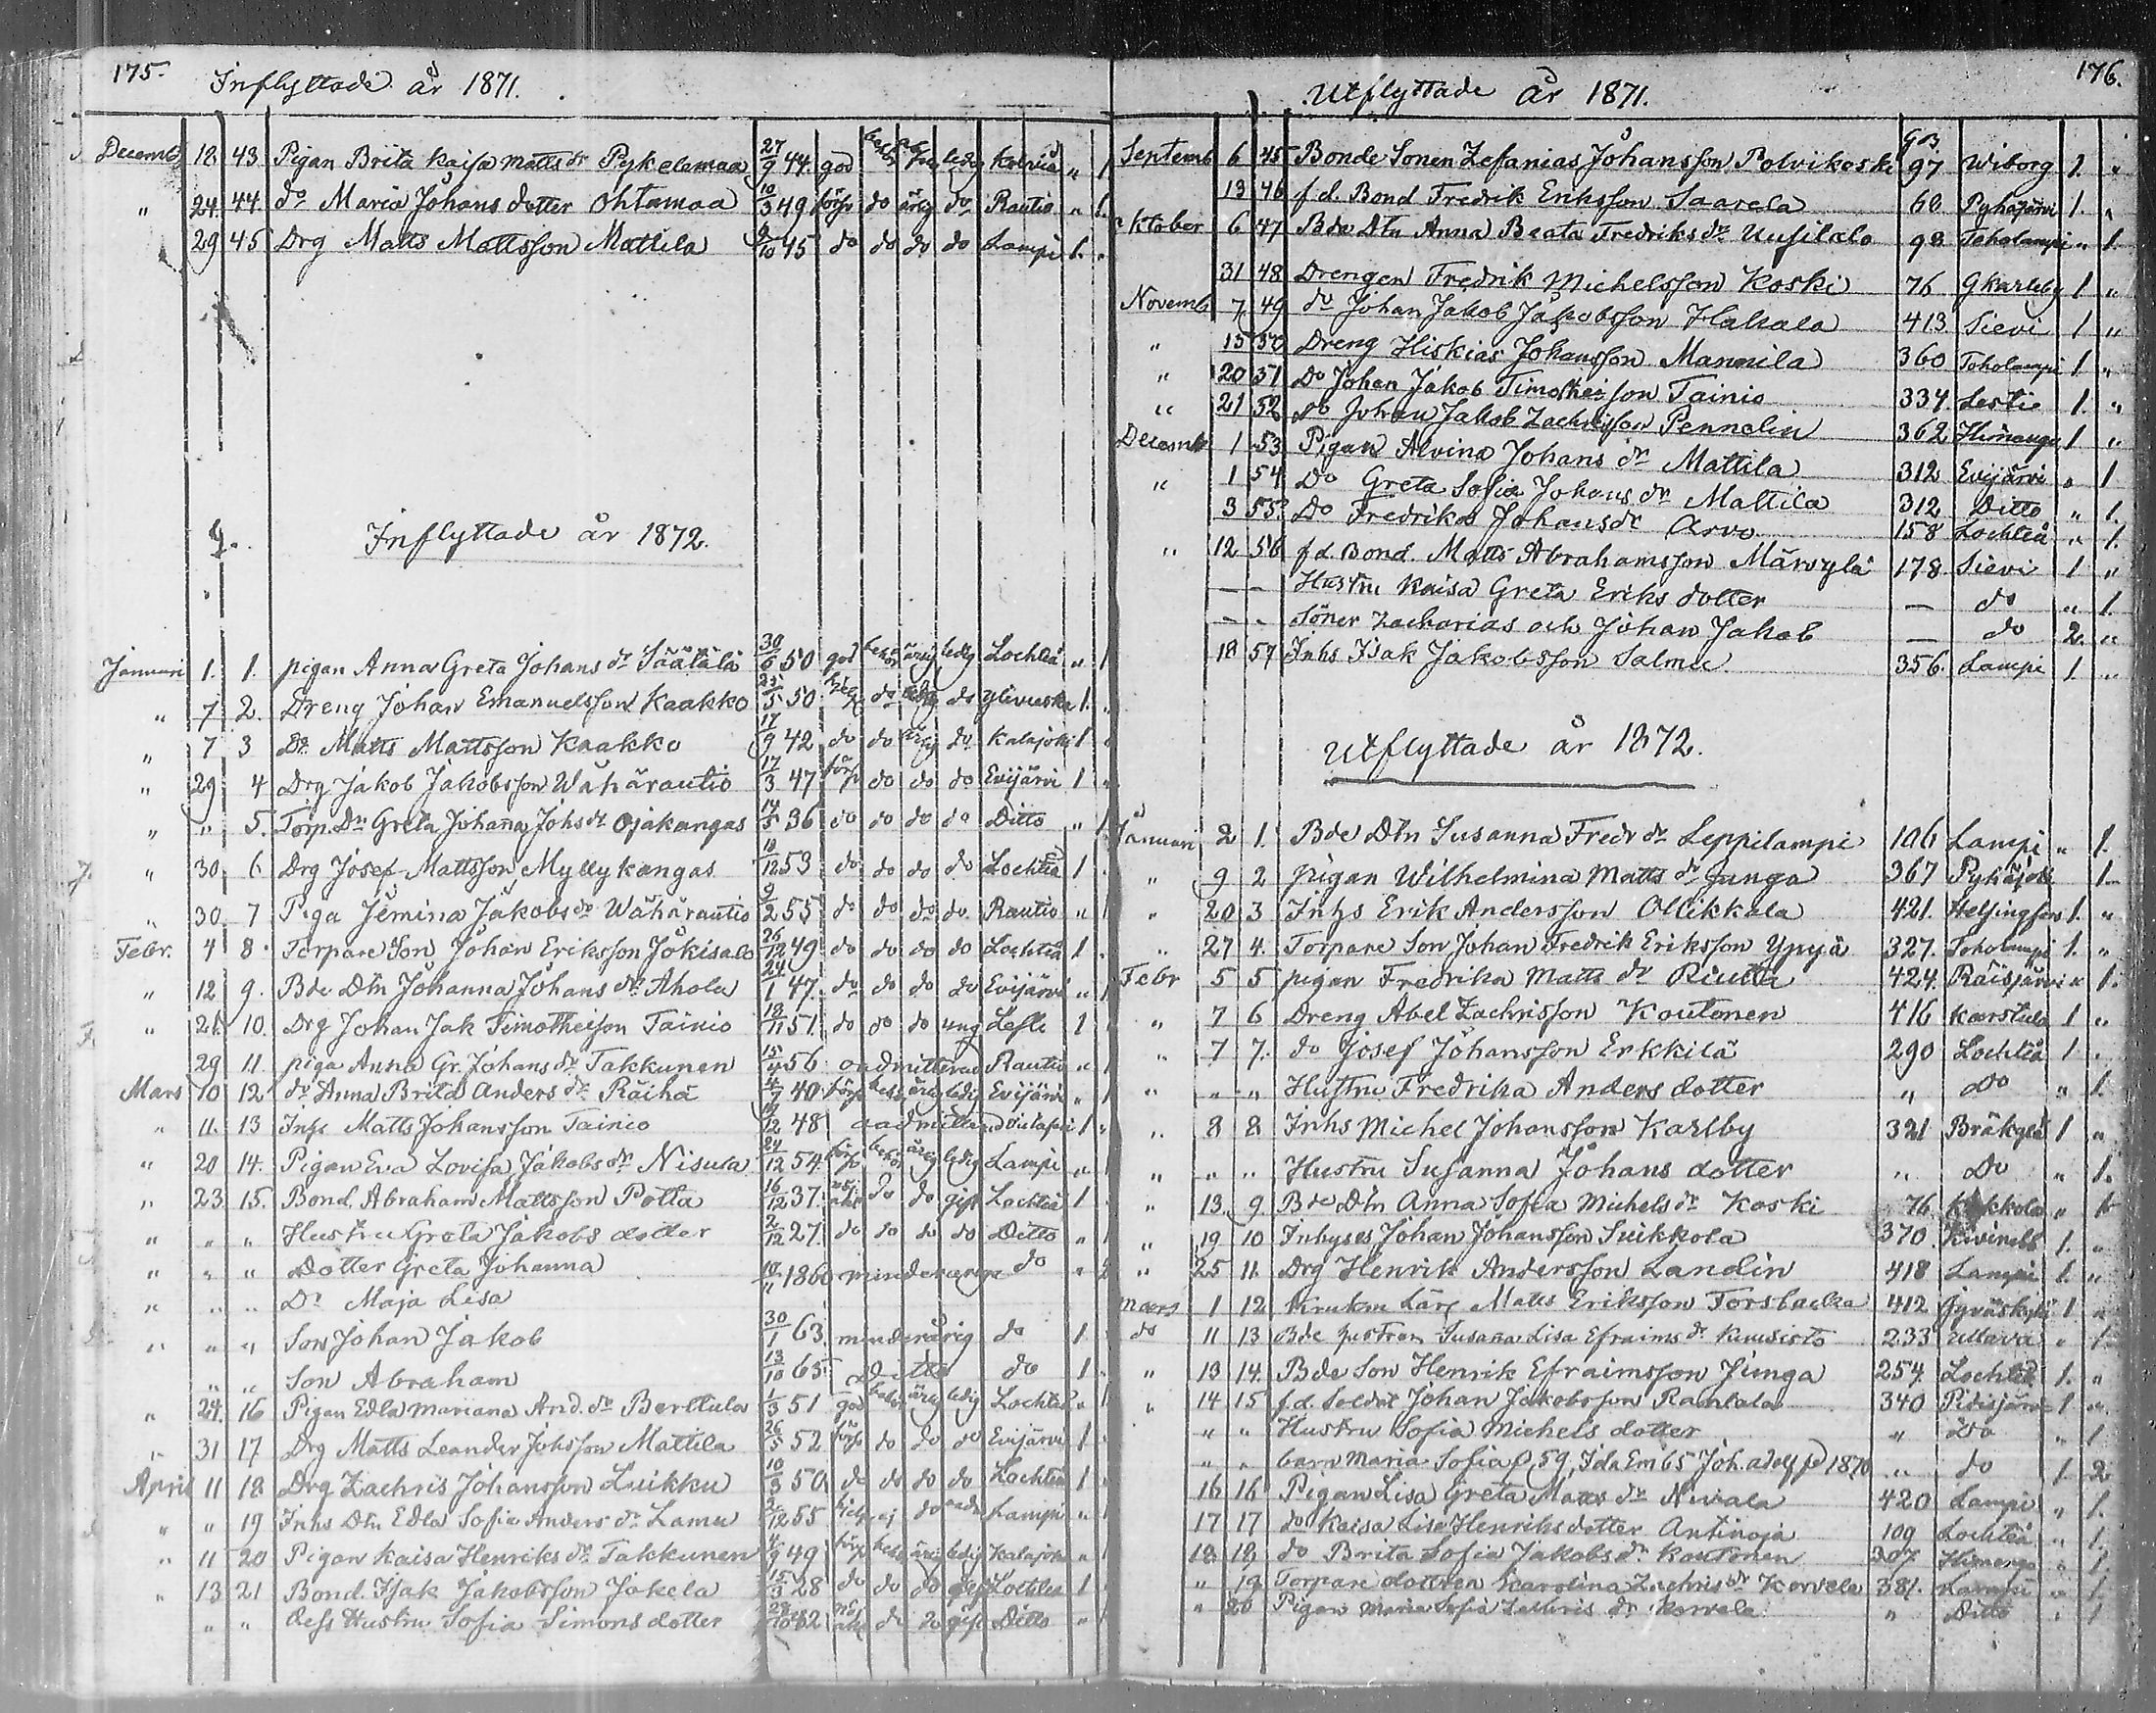 175.
Inflyttade år 1871.
Decemb 18 43 Pigan Brita Kaisa Matts dr Pykelemaa 27/9 44. god ledig Kelviå " 1
" 24. 44. do Maria Johans dotter Ohtamaa 10/3 49 förs do ärlig do Rautio " 1.
29 45 Drg Matts Mattsson Mattila 9/10 45 do do do do Lampi 1. "
Inflyttade år 1872.
Januari 1. 1. pigan Anna Greta Johans dr Säätälä 30/6 50 god behör ärlig ledig Lochteå " 1
" 7 2. Dreng Johan Emanuelsson Kaakko 25/5 50 do do Ylivieska 1. "
" 7 3 Do Matts Mattsson Kaakko 17/9 42 do do ärlig do Kalajoki 1
" 29 4 Drg Jakob Jakobsson Wähärautio 17/3 47 förs do do do Evijärvi 1 "
" " 5. Torp. Dn Greta Johanna Johs dr Ojakangas 14/5 36 do do do do Ditto " 1
" 30 6 Drg Josef Mattsson Myllykangas 10/12 53 do do do do Lochteå 1
" 30 7 Piga Jemina Jakobs dr Wähärautio 9/2 55 do do do do Rautio " 1
Febr. 4 8 Torpare Son Johan Eriksson Jokisalo 26/12 49 do do do do Lochteå 1
" 12 9. Bde Dtn Johanna Johans dr Ahola 24/1 47. do do do do Evijärvi " 1
" 21. 10. Drg Johan Jak Timotheison Tainio 18/11 51. do do do ung Lestie 1
29 11 piga Anna Gr. Johans dr Takkunen 15/4 56 oadmitterad Rautio " 1
Mars 10 12 do Anna Brita Anders dr Räihä 4/7 40 förs beh ärlig ledig Evijärvi " 1
" 11. 13 Inhs Matts Johansson Tainio 19/12 48 oadmitterad 1 "
" 20 14. Pigan Eva Lovisa Jakobs dr Nisula 24/12 54 förs behör ärlig ledig Lampi " 1
" 23 15. Bond. Abraham Mattsson Potta 16/12 37. do do gift Lochteå 1
" " " Hustru Greta Jakobs dotter 2/12 27. do do do do Ditto " 1
" " " Dotter Greta Johanna 1860 minderåriga do " 2
" " " Do Maja Lisa
" " " Son Johan Jakob 30/1 63 minderårig do 1
" " Son Abraham 13/10 65 Ditto do 1
" 24. 16 Pigan Edla Mariana And. dr Berttula 1/3 51 god behör ärlig ledig Lochteå " 1
" 31 17 Drg Matts Leander Johsson Mattila 26/5 52 förs do do do Evijärvi 1
April 11 18 Drg Zachris Johansson Luikku 10/3 50 do do do do Lochteå 1
" " 19 Inhs Dtn Edla Sofia Anders dr Lamu 2/12 55 ej do Lampi "
" 11 20 Pigan Kaisa Henriks dr Takkunen 4/9 49 förs behö ärlig ledig Kalajoki "
" 13 21 Bond. Isak Jakobsson Jokela 15/3 28 do do do gift Lochteå 1
" " Dess Hustru Sofia Simons dotter do do gift Ditto "
176.
Utflyttade år 1871.
Septemb 6 45 Bonde Sonen Zefanias Johansson Polvikoski 97 Wiborg 1. "
13 46 f.d. Bond Fredrik Eriksson Saarela 60 Pyhäjärvi 1. "
ktober 6 47 Bde Dtn Anna Beata Fredriks dr Uusitalo 98 Toholampi " 1.
31 48 Drengen Fredrik Michelsson Koski 76 GKarleby 1 "
Novemb 7 49 do Johan Jakob Jakobsson Hakala 413. Sievi 1 "
" 15 50 Dreng Hiskias Johansson Mannila 360 Toholampi 1 "
" 20 51 Do Johan Jakob Timotheisson Tainio 334. Lestie 1. "
" 21 52 do Johan Jakob Zachrisson Pennolin 362 Himanga 1 "
Decemb 1 53 Pigan Alvina Johans dr Mattila 312 Evijärvi " 1
" 1 54 Do Greta Sofia Johans dr Mattila 312 Ditto " 1.
3 55 Do Fredrika Johansdr Arvo 158 Lochteå " 1.
" 12 56 f.d. Bond. Matts Abrahamsson Märsylä 178 Sievi 1 "
— - Hustru Kaisa Greta Eriks dotter — do " 1.
— - Söner Zacharias och Johan Jakob — do 2. "
18 57 Inhs Isak Jakobsson Salmu 356. Lampi 1. "
Utflyttade år 1872.
Januari 2 1. Bde Dtn Susanna Fredr dr Leppilampi 106 Lampi " 1.
" 9 2 pigan Wilhelmina Matts dr Junga 367 Pyhäjoki 1.
" 20 3 Inhs Erik Andersson Ollikkala 421. Helsingfors 1. "
" 27 4. Torpare Son Johan Fredrik Eriksson Ypyä 327. Toholampi 1. "
Febr 5 5 pigan Fredrika Matts dr Riutta 424. Räisjärvi " 1.
" 7 6 Dreng Abel Zachrisson Koutonen 416 Karstula 1 "
" 7 7. do Josef Johansson Erkkilä 290 Lochteå 1 "
" " " Hustru Fredrika Anders dotter " Do " 1.
" 8 8 Inhs Michel Johansson Karlby 321 1 "
" " " Hustru Susanna Johans dotter " Do " 1.
" 13. 9. Bde Dtn Anna Sofia Michels dr Koski 76 Kokkola " 1
" 19 10 Inhyses Johan Johansson Suikkola 370. 1. "
" 25 11. Drg Henrik Andersson Landin 418 Lampi 1. "
Mars 1 12 Matts Eriksson Forsbacka 412 Jyväskylä 1 "
do 11 13 Bde hustron Susana Lisa Efraims dr Kuusisto 233 Ullava " 1.
" 13 14. Bde Son Henrik Efraimsson Junga 254. Lochteå 1. "
" 14 15 f.d. Soldat Johan Jakobsson Rantala 340 Pidisjärvi 1 "
" " Hustru Sofia Michels dotter " Do " 1
" " barn Maria Sofia f. 59, Ida Em 65 Joh. Adolf fd 1870 " do 1. 2
16 16 Pigan Lisa Greta Matts dr Nivala 420 Lampi " 1.
17 17 do Kaisa Lisa Henriks dotter Antinoja 109 Lochteå " 1.
18 18 do Brita Sofia Jakobs dr Koutonen 307. Himanga " 1
" 19 Torpare dottren Karolina Zachris dr Korvela 381. Lampi " 1
" 20 Pigan Maria Sofia Zachris dr Korvela " Ditto " 1